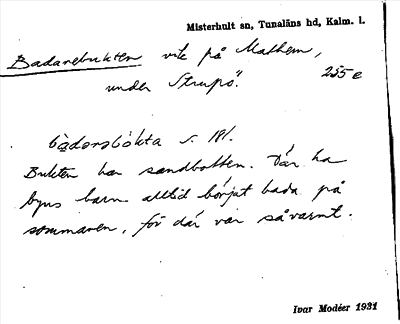 Misterhult sn, Tunaläns hd, Kalm. l.
Badarebukten vik på Malhem,
under Strupö. 255 e
bàdarəbókta s. 18/.
Bukten har sandbotten. Där ha
byns barn alltid börjat bada på
sommaren, för där var så varmt.
Ivar Modéer 1931